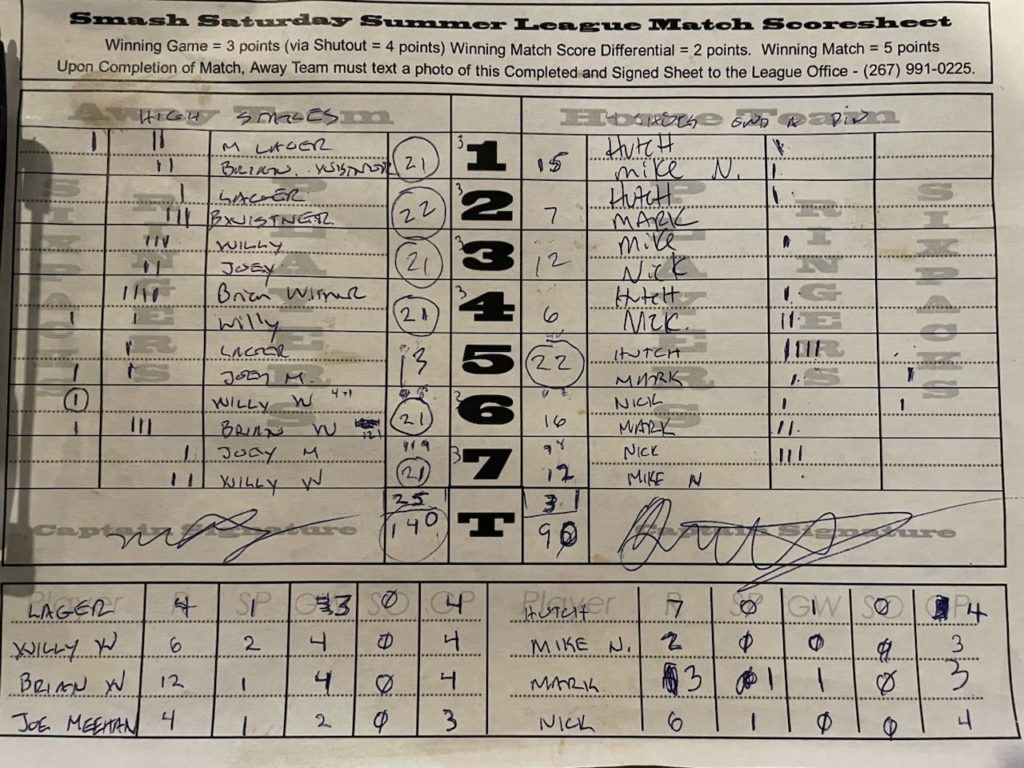 Smash Saturday Summer League Match Scoresheet
Winning Game = 3 points (via Shutout = 4 points) Winning Match Score Differential = 2 points. Winning Match = 5 points
Upon Completion of Match, Away Team must text a photo of this Completed and Signed Sheet to the League Office - (267) 991-0225.
Away Team Home Team
HIGH STAKES
I II M LAGER 21 3 1 15 HUTCH I
II BRIAN WISTNER MIKE N. I
I LAGER 22 3 2 7 HUTCH I
III BWISTNER MARK
III WILLY 21 3 3 12 MIKE I
II JOEY NICK
IIII Brian Wistner 21 3 4 6 HUTCH I
I I WILLY II
I LAGER 13 5 22 HUTCH IIII
I I JOEY M. MARK I I
I WILLY W 21 6 16 NICK I I
I III BRIAN W MARK II
I JOEY M 21 3 7 12 NICK III
II WILLY W MIKE N
SIXPACKS RINGERS PLAYERS PLAYERS RINGERS SIXPACKS
25 3
140 T 90
Captain Signature Captain Signature
Player R SP GW SO GP Player R SP GW SO GP
LAGER 4 1 3 0 4 HUTCH 7 0 1 0 4
WILLY W 6 2 4 0 4 MIKE N. 2 0 0 0 3
BRIAN W 12 1 4 0 4 MARK 3 1 1 0 3
JOE MEEHAN 4 1 2 0 3 NICK 6 1 0 0 4